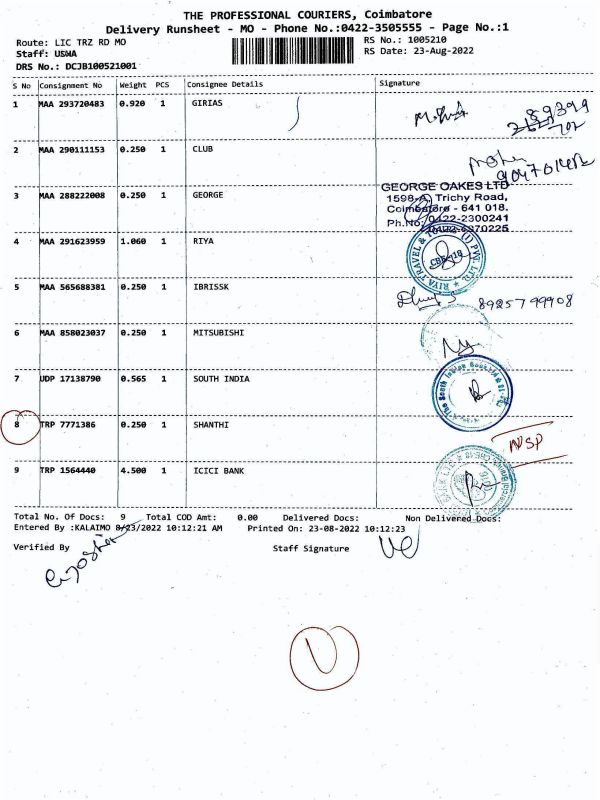 THE PROFESSIONAL COURIERS, Coimbatore
Delivery Runsheet - MO - Phone No.:0422-3505555 - Page No.:1
Route: LIC TRZ RD MO RS No.: 1005210
Staff: USWA RS Date: 23-Aug-2022
DRS No.: DCJB100521001
S No Consignment No Weight PCS Consignee Details Signature
1 MAA 293720483 0.920 1 GIRIAS
2 MAA 290111153 0.250 1 CLUB
3 MAA 288222008 0.250 1 GEORGE
GEORGE OAKES LTD
1598-A, Trichy Road,
Coimbatore - 641 018.
Ph.No. 0422-2300241
4 MAA 291623959 1.060 1 RIYA
5 MAA 565688381 0.250 1 IBRISSK 8925799908
6 MAA 858023037 0.250 1 MITSUBISHI
7 UDP 17138790 0.565 1 SOUTH INDIA
8 TRP 7771386 0.250 1 SHANTHI NSP
9 TRP 1564440 4.500 1 ICICI BANK
Total No. Of Docs: 9 Total COD Amt: 0.00 Delivered Docs: Non Delivered Docs:
Entered By :KALAIMO 8/23/2022 10:12:21 AM Printed On: 23-08-2022 10:12:23
Verified By Staff Signature